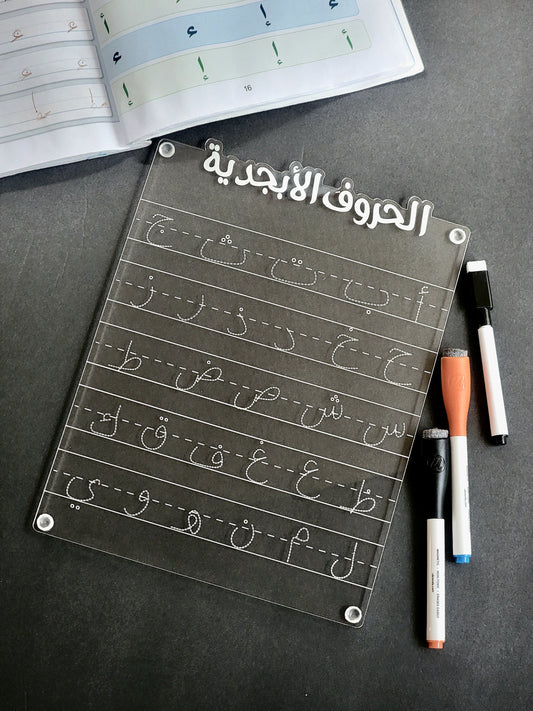 16
الحروف الأبجدية
أ ب ت ث ج
ح خ د ذ ر ز
س ش ص ض ط
ظ ع غ ف ق ك
ل م ن ه و ي